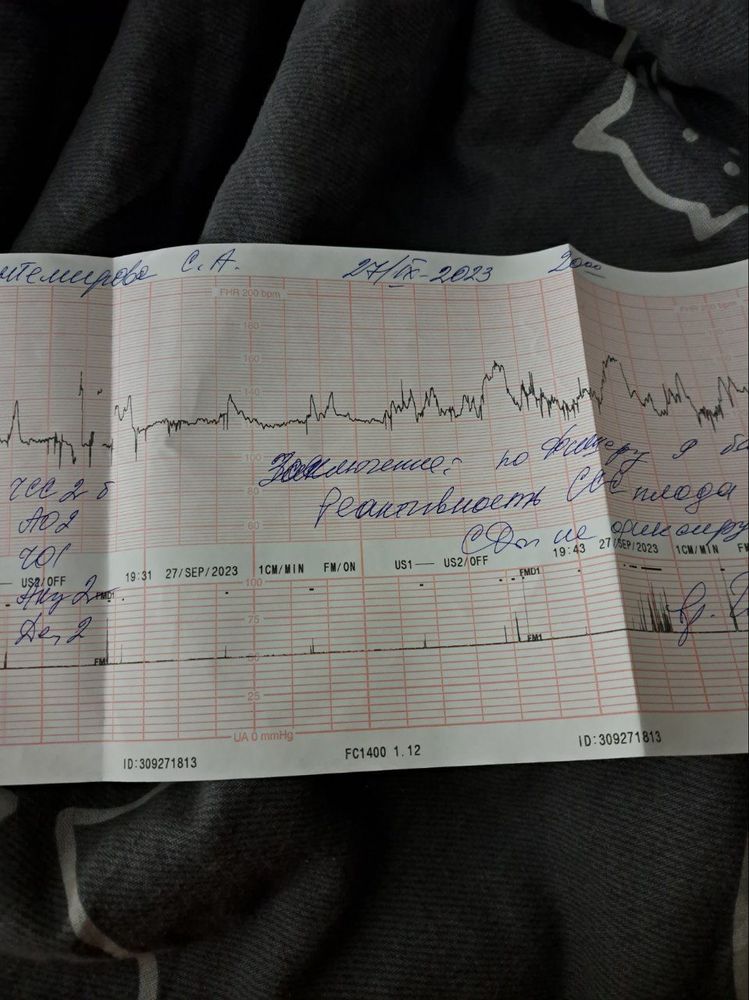 С.А. 27/IX-2023 20⁰⁰
FHR 200 bpm
180
160
140
100
80
60
Заключение: по Фишеру 9 ба
ЧСС 2 б
Реактивность ССС плода
АО2
СДм не фиксиру
ЧО1
US2/OFF 19:31 27/SEP/2023 1CM/MIN FM/ON US1 US2/OFF 19:43 27/SEP/2023 1CM/MIN
Акц 2
FMD1
100
FMD1
75
Дец 2
FM1
50
FM1
25
UA 0 mmHg
ID:309271813 FC1400 1.12 ID:309271813